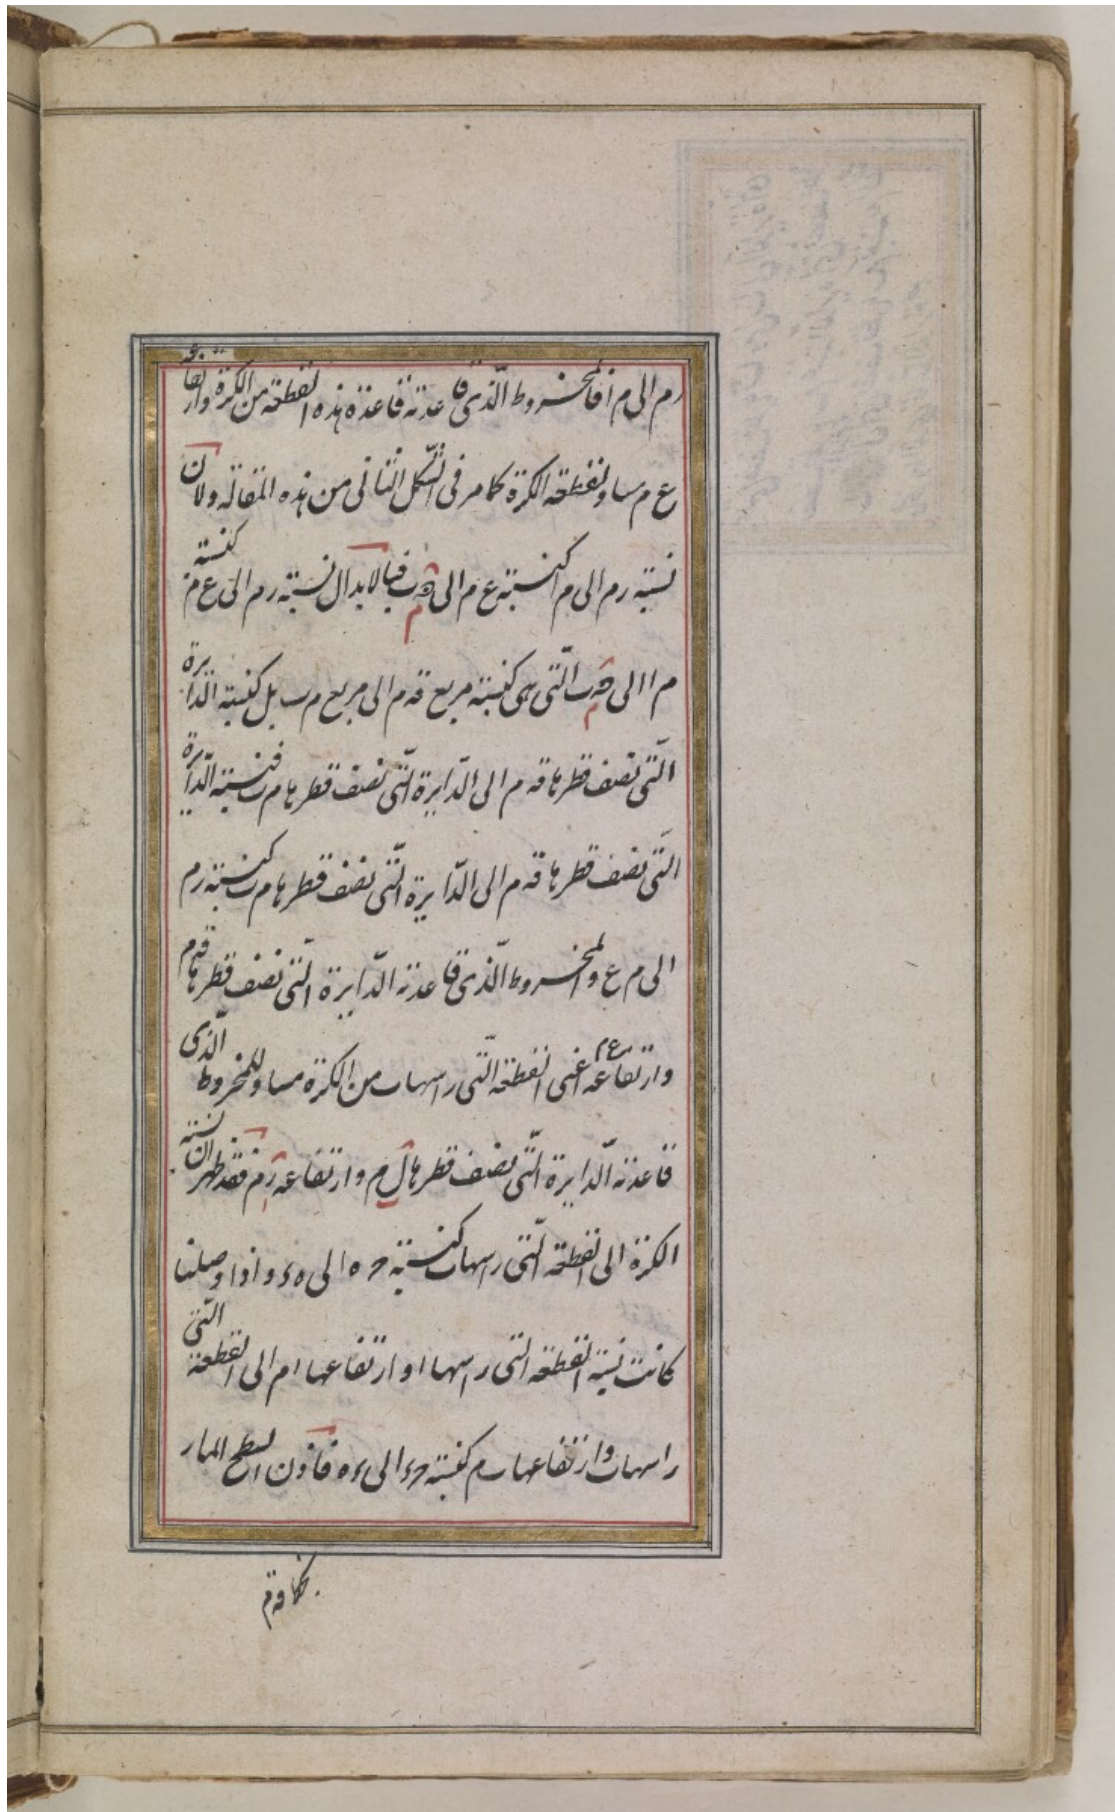 رم الى م ا فالمخروط الّذى قاعدته قاعدة هذه القطعة من الكرة وارتفاعه
ع م مساو لقطعة الكرة كما مر فى الشّكل الثانى من هذه المقالة ولان
نسبة رم الى م ا كنسبة ع م الى م ب فبالابدال نسبة رم الى ع م كنسبة
م ا الى م ب الّتى هى كنسبة مربع قه م الى مربع م ب بل كنسبة الدّايرة
الّتى نصف قطرها قه م الى الدّايرة الّتى نصف قطرها م ب فنسبة الدّايرة
الّتى نصف قطرها قه م الى الدّايرة الّتى نصف قطرها م ب كنسبة رم
الى م ع والمخروط الّذى قاعدته الدّايرة الّتى نصف قطرها قه م
وارتفاعه ع م اعنى القطعة الّتى راسها ب من الكرة مساو للمخروط الّذى
قاعدته الدّايرة الّتى نصف قطرها ل م وارتفاعه رم فقد ظهر ان نسبة
الكرة الى القطعة الّتى راسها ب كنسبة ح ه الى ه ء واذا وصلنا
كانت نسبة القطعة الّتى راسها ا وارتفاعها ا م الى القطعة الّتى
راسها ب وارتفاعها ب م كنسبة ح ء الى ء ه فاذن السطح المار